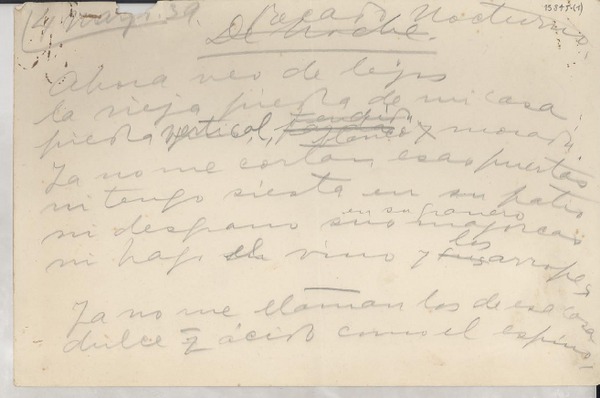 4 mayo. 39. Pecado Nocturno
De noche.
Ahora veo de lejos
la vieja piedra de mi casa,
piedra vertical, blanco y morada.
Ya no me cortan esas puertas
ni tengo siesta en su patio
en su granero
ni desgrano sus majorcas
ni hago el vino y los arropes
Ya no me llaman los de esa casa
dulce y ácido como el espino,